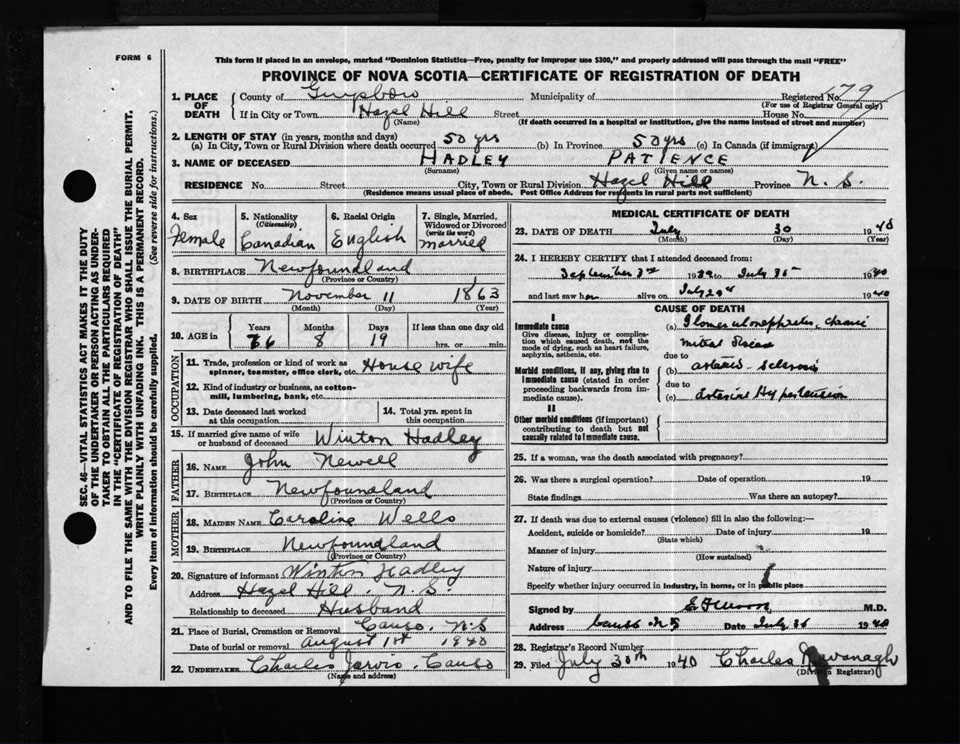 FORM 6
This form if placed in an envelope, marked "Dominion Statistics—Free, penalty for improper use $300," and properly addressed will pass through the mail "FREE"
PROVINCE OF NOVA SCOTIA—CERTIFICATE OF REGISTRATION OF DEATH
SEC. 46—VITAL STATISTICS ACT MAKES IT THE DUTY
OF THE UNDERTAKER OR PERSON ACTING AS UNDER-
TAKER TO OBTAIN ALL THE PARTICULARS REQUIRED
IN THE "CERTIFICATE OF REGISTRATION OF DEATH"
AND TO FILE THE SAME WITH THE DIVISION REGISTRAR WHO SHALL ISSUE THE BURIAL PERMIT.
WRITE PLAINLY WITH UNFADING INK. THIS IS A PERMANENT RECORD.
Every item of information should be carefully supplied. (See reverse side for instructions.)
1. PLACE OF DEATH County of Guysboro Municipality of Registered No. 79
(For use of Registrar General only)
If in City or Town Hazel Hill Street House No.
(Name) (If death occurred in a hospital or institution, give the name instead of street and number)
2. LENGTH OF STAY (in years, months and days)
(a) In City, Town or Rural Division where death occurred 50 yrs (b) In Province 50 yrs (c) In Canada (if immigrant)
3. NAME OF DECEASED HADLEY PATIENCE
(Surname) (Given name or names)
RESIDENCE No. Street City, Town or Rural Division Hazel Hill Province N. S.
(Residence means usual place of abode. Post Office Address for Residents in rural parts not sufficient)
4. Sex 5. Nationality 6. Racial Origin 7. Single, Married,
(Citizenship) Widowed or Divorced
(write the word)
Female Canadian English married
8. BIRTHPLACE Newfoundland
(Province or Country)
9. DATE OF BIRTH November 11 1863
(Month) (Day) (Year)
10. AGE in Years Months Days If less than one day old
76 8 19 hrs. or min.
OCCUPATION
11. Trade, profession or kind of work as
spinner, teamster, office clerk, etc. House wife
12. Kind of industry or business, as cotton-
mill, lumbering, bank, etc.
13. Date deceased last worked 14. Total yrs. spent in
at this occupation this occupation
15. If married give name of wife
or husband of deceased Winton Hadley
FATHER
16. NAME John Newell
17. BIRTHPLACE Newfoundland
(Province or Country)
MOTHER
18. MAIDEN NAME Caroline Wells
19. BIRTHPLACE Newfoundland
(Province or Country)
20. Signature of informant Winton Hadley
Address Hazel Hill. N. S.
Relationship to deceased Husband
21. Place of Burial, Cremation or Removal Canso. N.S
Date of burial or removal August 1st 1940
22. UNDERTAKER Charles Jarvis. Canso
(Name and address)
MEDICAL CERTIFICATE OF DEATH
23. DATE OF DEATH July 30 1940
(Month) (Day) (Year)
24. I HEREBY CERTIFY that I attended deceased from:
September 3rd 1939 to July 1940
and last saw her alive on July 29 1940
CAUSE OF DEATH
I
Immediate cause
Give disease, injury or complica-
tion which caused death, not the
mode of dying, such as heart failure,
asphyxia, asthenia, etc.
(a) Glomerulonephritis, chronic
mitral disease
due to
Morbid conditions, if any, giving rise to
immediate cause (stated in order
proceeding backwards from im-
mediate cause).
(b) arterio-sclerosis
due to
(c) Arterial Hypertension
II
Other morbid conditions (if important)
contributing to death but not
causally related to immediate cause.
25. If a woman, was the death associated with pregnancy?
26. Was there a surgical operation? Date of operation 19
State findings Was there an autopsy?
27. If death was due to external causes (violence) fill in also the following:—
Accident, suicide or homicide? Date of injury 19
(State which)
Manner of injury
(How sustained)
Nature of injury
Specify whether injury occurred in industry, in home, or in public place
Signed by M.D.
Address Canso N S Date July 1940
28. Registrar's Record Number
29. Filed July 30th 1940 Charles Kavanagh
(Division Registrar)